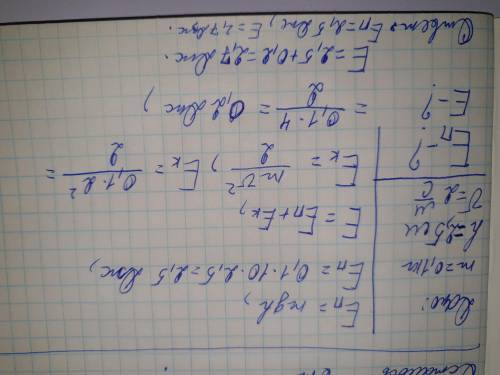 Дано:
m = 0,1 кг
h = 2,5 м
V = 2 м/с
Eп - ?
E - ?
Eп = mgh,
Eп = 0,1 · 10 · 2,5 = 2,5 Дж,
E = Eп + Eк,
Eк = mV²/2, Eк = 0,1 · 2²/2 =
= 0,1 · 4/2 = 0,2 Дж,
E = 2,5 + 0,2 = 2,7 Дж.
Ответ: Eп = 2,5 Дж, E = 2,7 Дж.